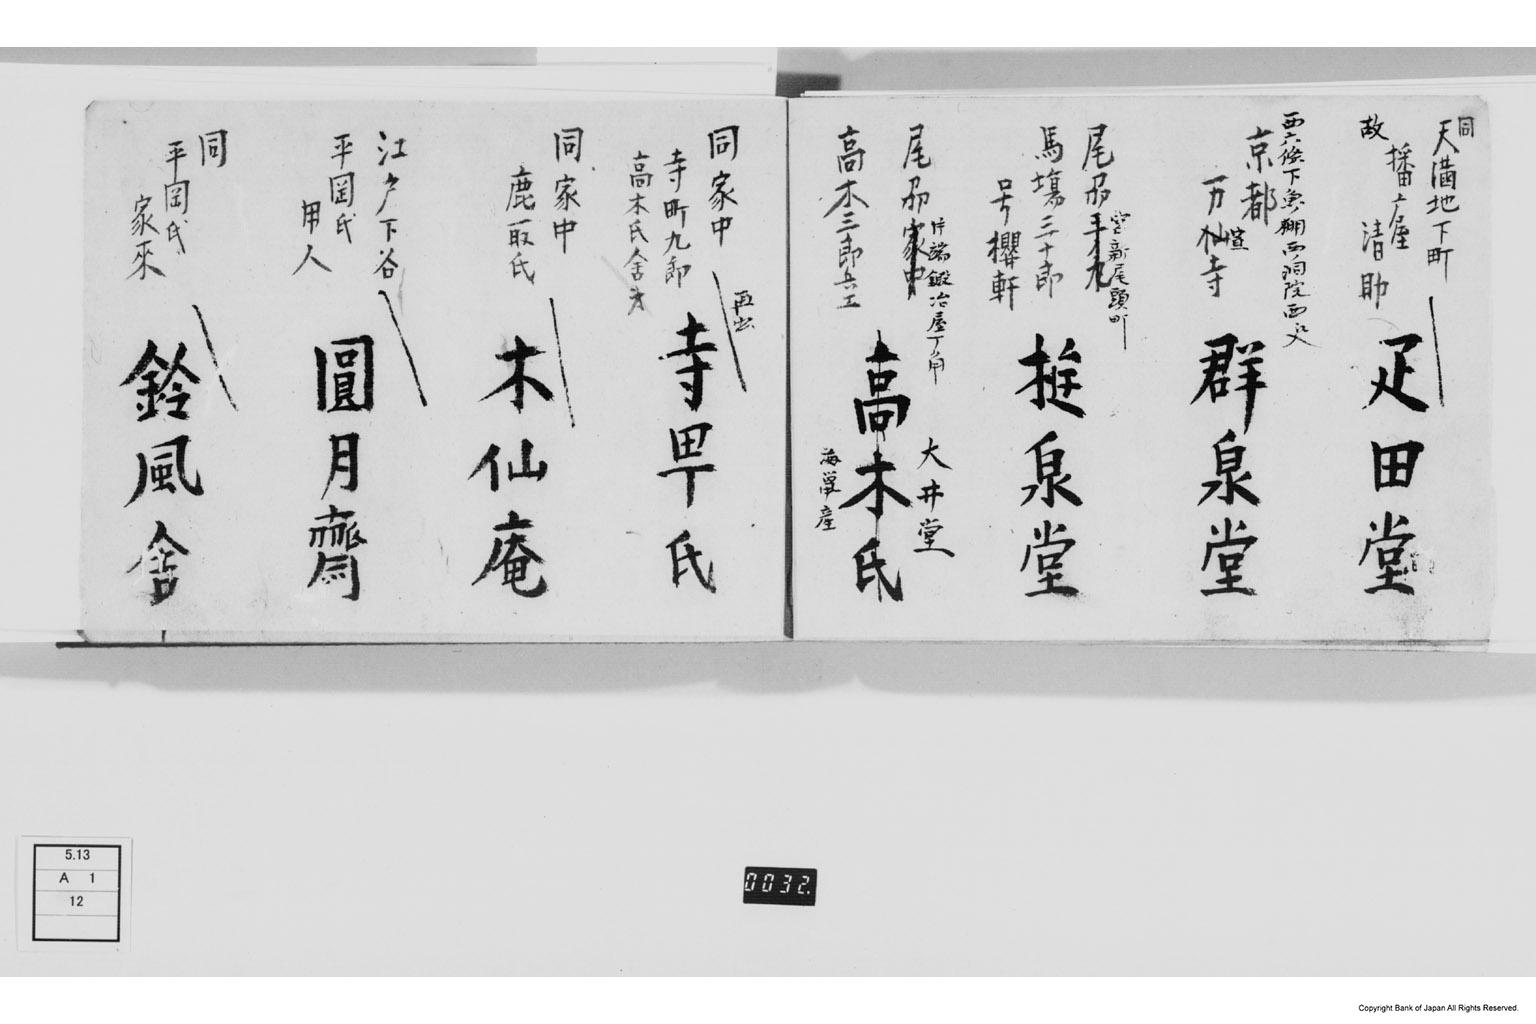 同
天満地下町
播广屋
故
清助
疋田堂
西六條下魚棚西洞院西へ入
京都
万仙寺
群泉堂
宮新尾頭町
尾刕
馬場三十郎
号櫻軒
泉堂
尾刕家中
片端鍛冶屋丁角
高木三郎兵エ
大井堂
高木氏
海
産
再出
同家中
寺町九郎
高木氏舎弟
寺町氏
同家中
鹿取氏
木仙庵
江戸下谷
平岡氏
用人
圓月齋
同
平岡氏
家来
鈴風舍
5.13
A 1
12
0032.
Copyright Bank of Japan All Rights Reserved.